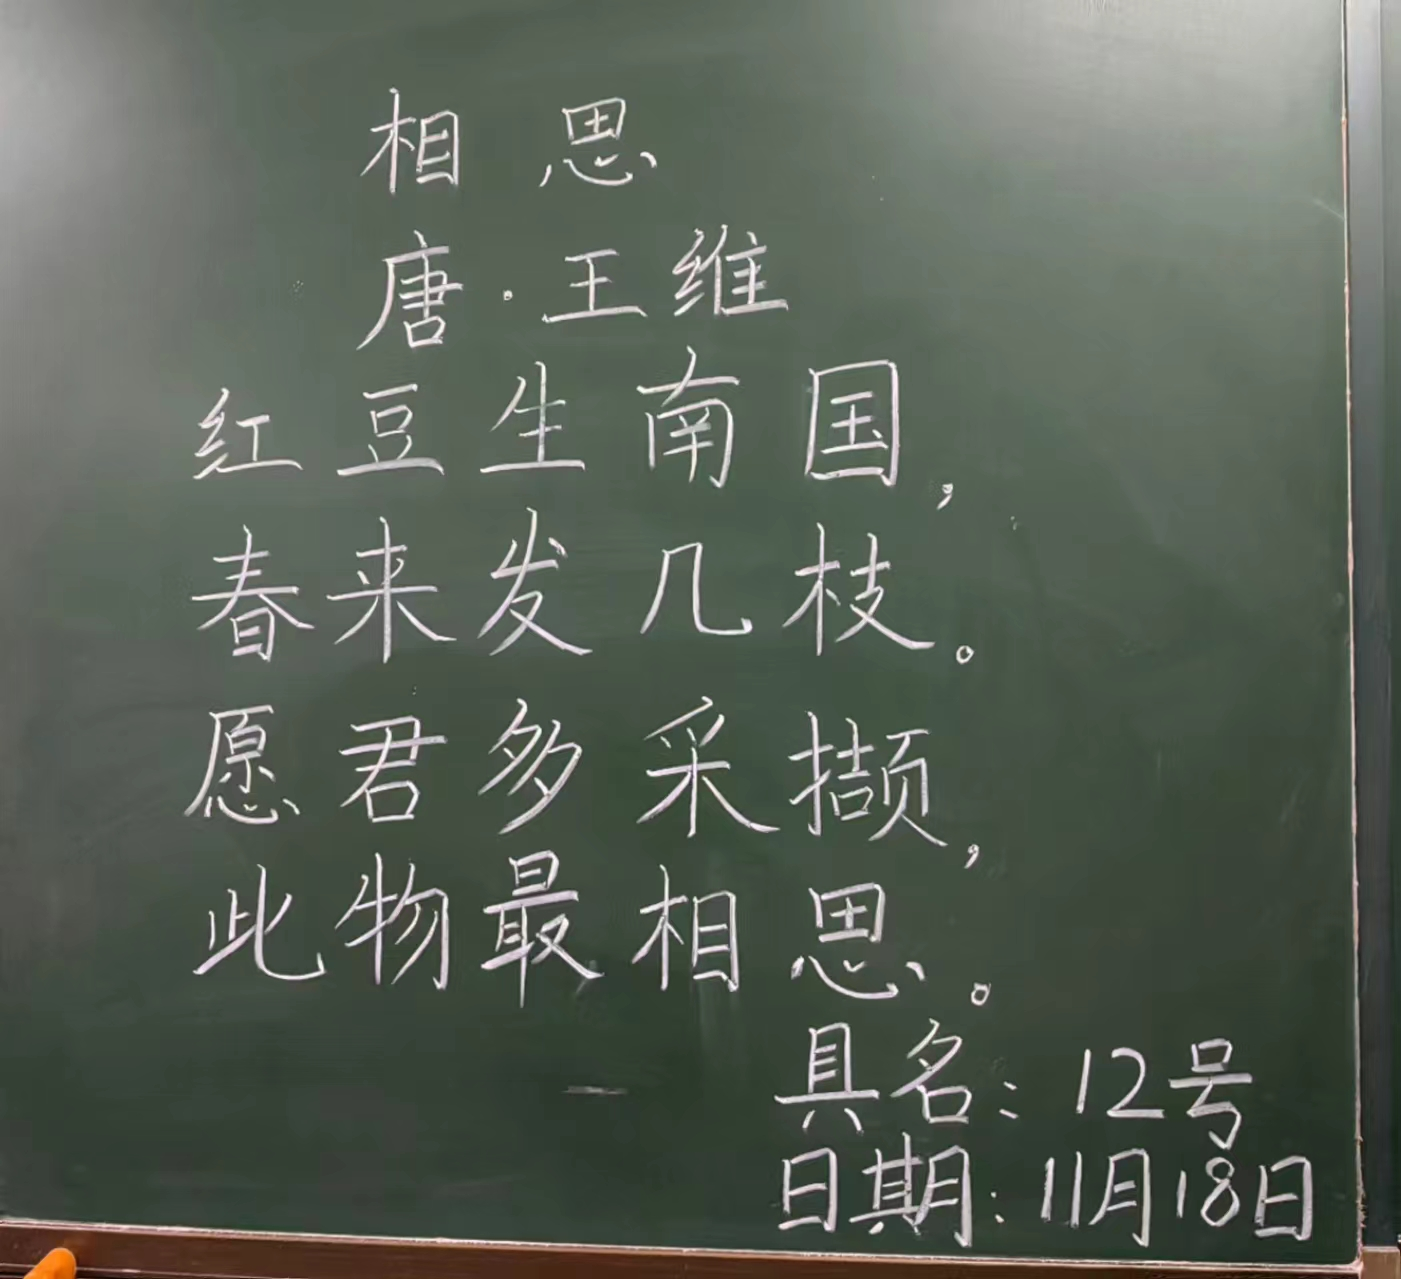 相思
唐·王维
红豆生南国，
春来发几枝。
愿君多采撷，
此物最相思。
具名：12号
日期：11月18日